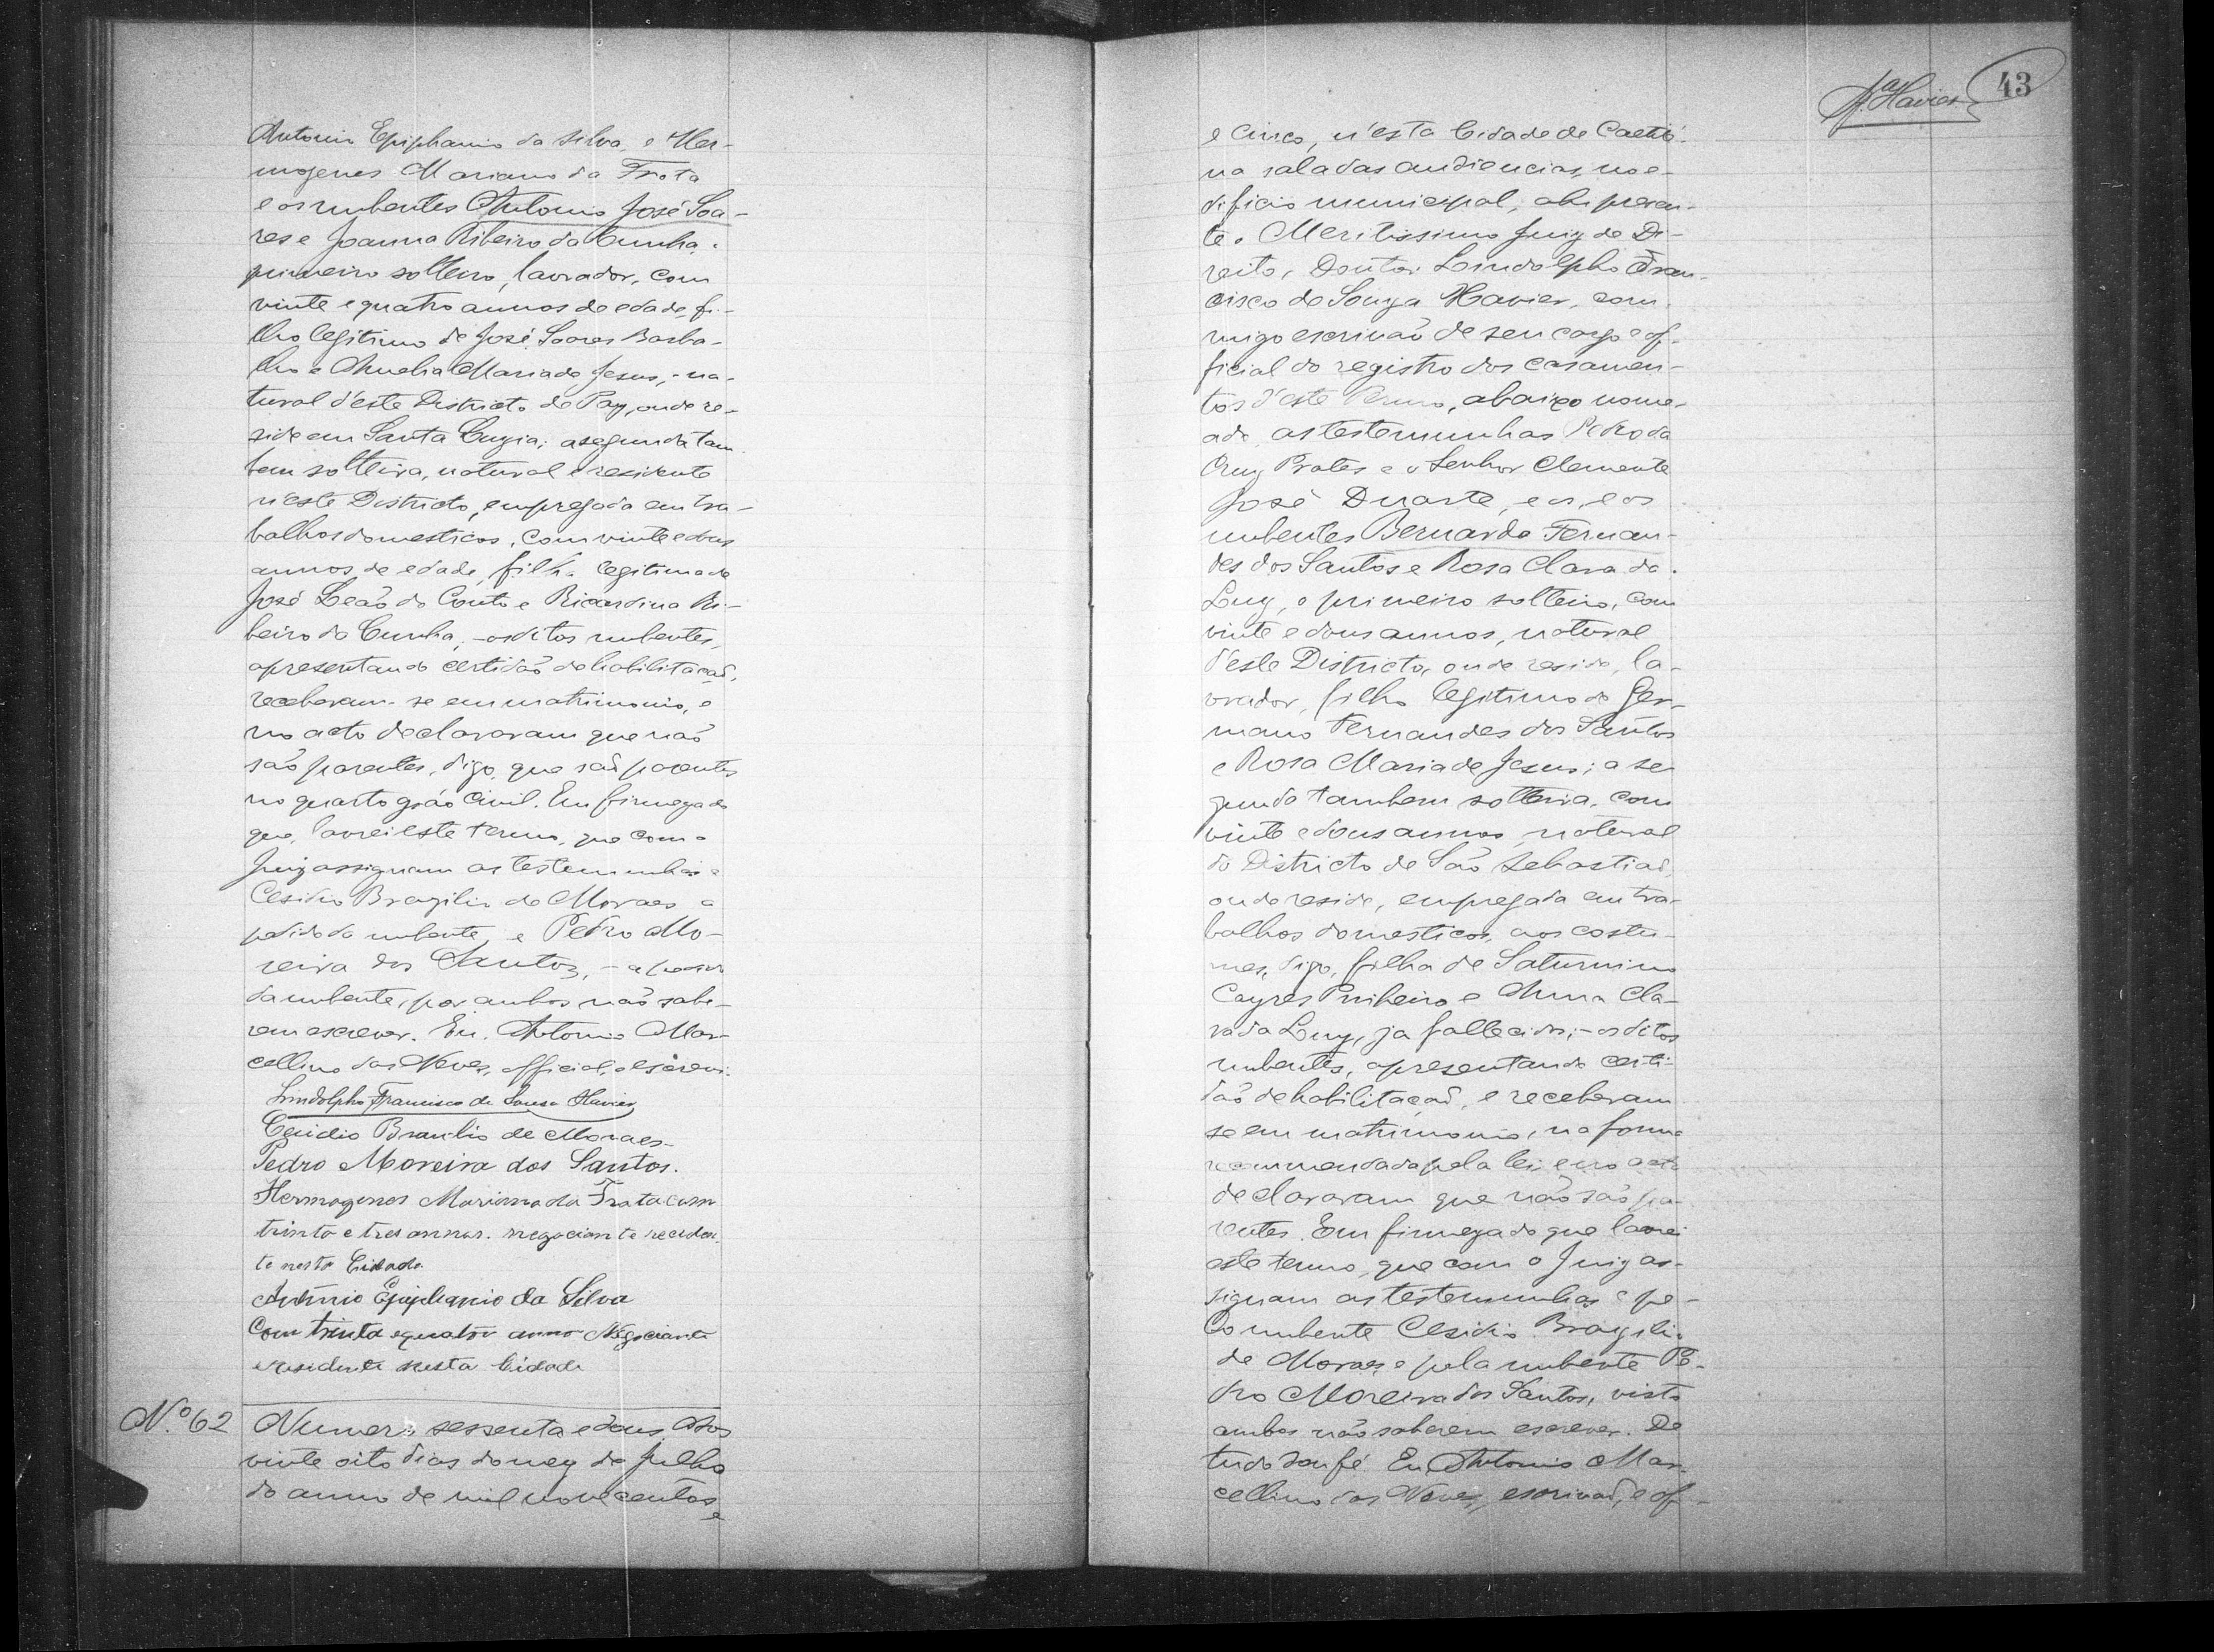 Antonio Epiphanio da Silva, e Her-
mogenes Mariano da Frota
e os nubentes Antonio José Soa-
res e Joanna Ribeiro da Cunha,
primeiro solteiro, lavrador, com
vinte e quatro annos de edade, fi-
lho legitimo de José Soares Barba-
lho e Amelia Maria de Jesus, - na-
tural d'este Districto de Paz, onde re-
side em Santa Luzia; a segunda tam
bem solteira, natural e residente
n'este Districto, empregada em tra-
balhos domesticos, com vinte e dous
annos de edade, filha legitima de
José Leão do Couto e Ricardina Ri-
beiro da Cunha, - os ditos nubentes,
apresentando certidão de habilitação,
receberam-se em matrimonio, e
no acto declararam que não
são parentes, digo, que são parentes
no quarto gráo civil. Em firmeza do
que, lavrei este termo, que com o
Juiz assignam as testemunhas e
Cesidio Brazilio de Moraes a
pedido da nubente, e Pedro Mo-
reira dos Santos, - a pedido
da nubente, por ambos não sabe-
rem escrever. Eu, Antonio Mar-
cellino das Neves, official, o escrevi.
Lindolpho Francisco de Sousa Xavier
Cesidio Brasilio de Moraes
Pedro Moreira dos Santos.
Hermogenes Mariano da Frota com
trinta e tres annos. negociante residen
te nesta Cidade
Antonio Epiphanio da Silva
Com trinta e quatro anno Negociante
e residente nesta Cidade
Nº. 62
Numero sessenta e dous. Aos
vinte oito dias do mez de Julho
do anno de mil novecentos
e
Xavier 43
e cinco, n'esta Cidade de Caetité
na sala das audiencias, no e-
dificio municipal, ahi presen-
te o Meritissimo Juiz de Di-
reito, Doutor Lindolpho Fran-
cisco de Souza Xavier, com
migo escrivão de seu cargo e of-
ficial do registro dos casamen-
tos d'este Termo, abaixo nome-
ado, as testemunhas Pedro da
Cruz Prates e o Senhor Clemente
José Duarte, e os, e os
nubentes Bernardo Fernan-
des dos Santos e Rosa Clara da
Luz, o primeiro solteiro, com
vinte e dous annos, natural
d'este Districto, onde reside, la-
vrador, filho legitimo de Ger-
mano Fernandes dos Santos
e Rosa Maria de Jesus; a se
gunda tambem solteira, com
vinte e dous annos, natural
do Districto de São Sebastião,
onde reside, empregada em tra-
balhos domesticos, aos costu-
mes, digo, filha de Saturnino
Cayres Pinheiro e Anna Cla-
ra da Luz, ja fallecidos; - os ditos
nubentes, apresentando certi-
dão de habilitação, e receberam
se em matrimonio, na forma
recommendada pela lei, e no acto
declararam que não são pa-
rentes. Em firmeza do que lavrei
este termo, que com o Juiz as-
signam as testemunhas e pe-
lo nubente Cesidio Brazilio
de Moraes, e pela nubente Pe-
dro Moreira dos Santos, visto
ambos não saberem escrever. De
tudo dou fé. Eu Antonio Mar-
cellino das Neves, escrivão, e of-